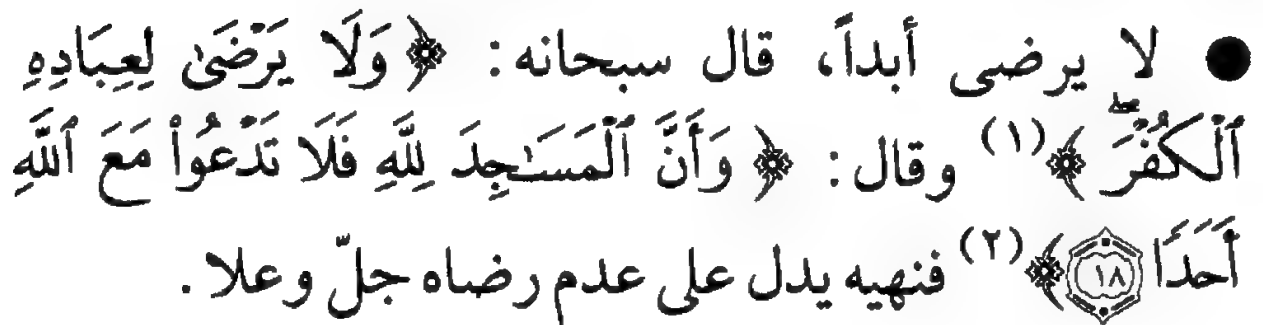 ● لا يرضى أبداً، قال سبحانه: ﴿وَلَا يَرْضَىٰ لِعِبَادِهِ
ٱلْكُفْرَۖ﴾(١) وقال: ﴿وَأَنَّ ٱلْمَسَـٰجِدَ لِلَّهِ فَلَا تَدْعُواْ مَعَ ٱللَّهِ
أَحَدًا ١٨﴾(٢) فنهيه يدل على عدم رضاه جلّ وعلا.